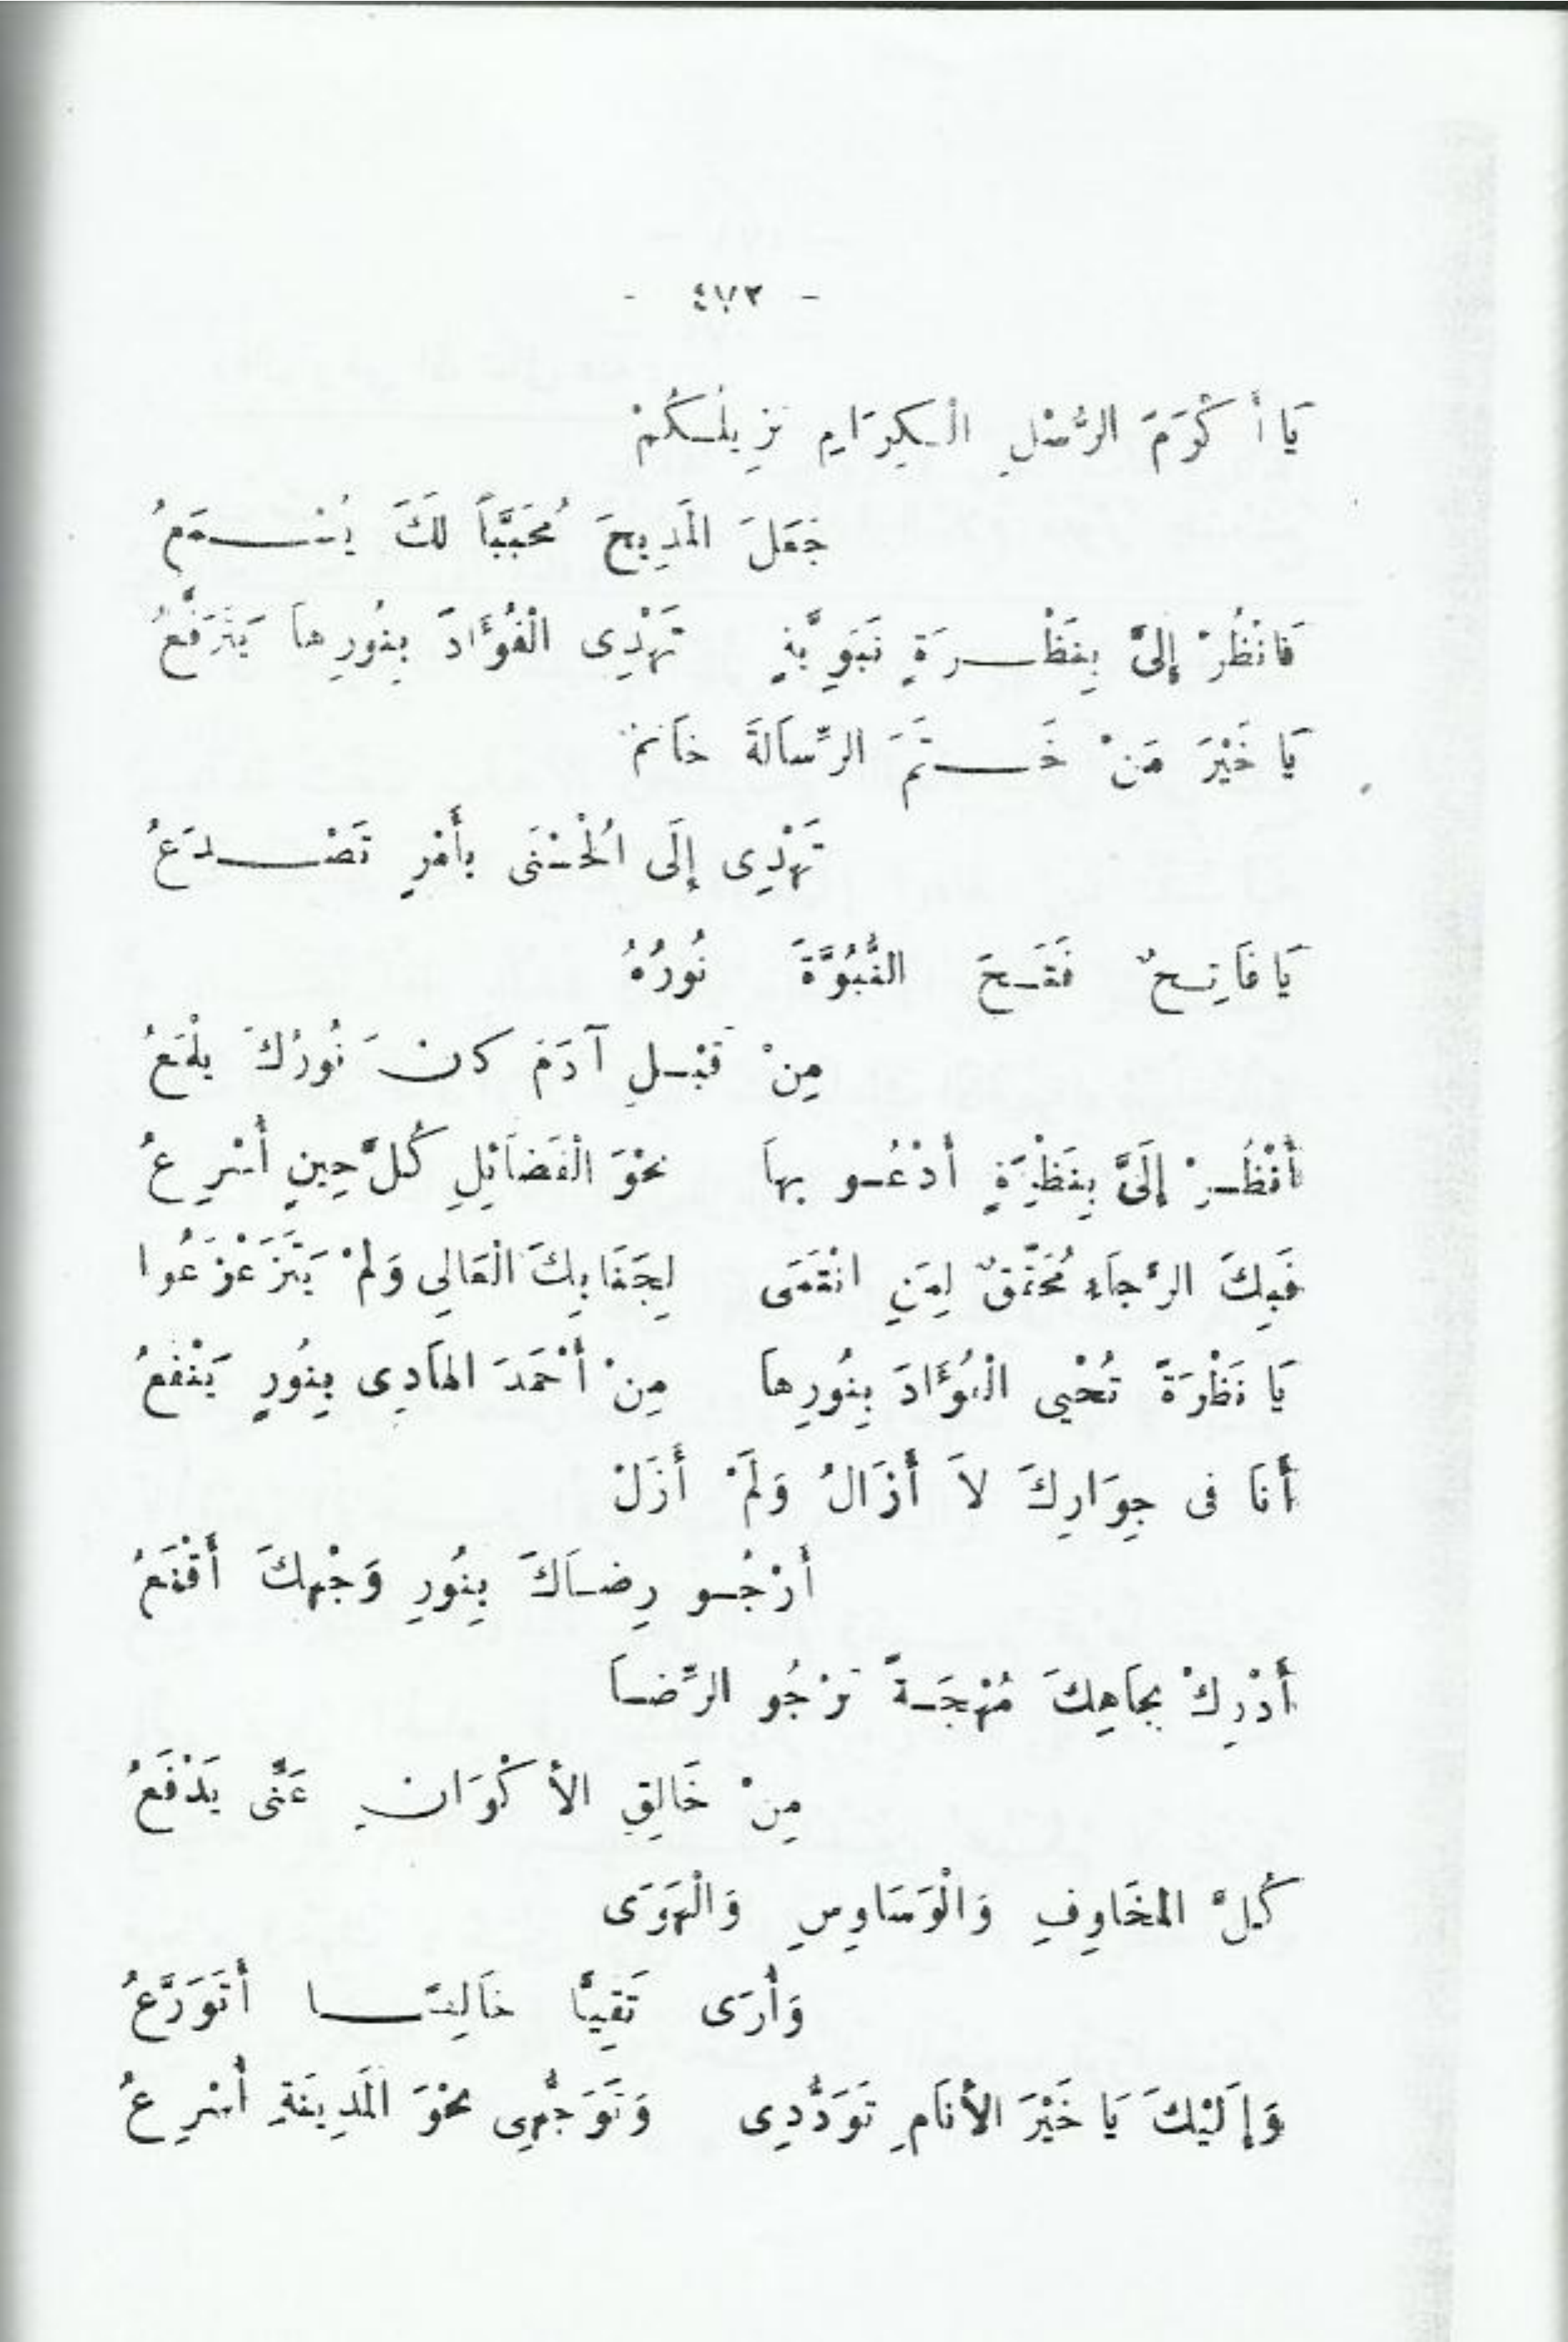 - ٤٧٢ -
يَا أَكْرَمَ الرُّسْلِ الْكِرَامِ نَزِيلُكُمْ
جَعَلَ الْمَدِيحَ مُحَبَّبًا لَكَ يُسْمَعُ
فَانْظُرْ إِلَىَّ بِنَظْرَةٍ نَبَوِيَّةٍ تَهْدِى الْفُؤَادَ بِنُورِهَا يَتَرَفَّعُ
يَا خَيْرَ مَنْ خَتَمَ الرِّسَالَةَ خَاتَمٌ
تَهْدِى إِلَى الْحُسْنَى بِأَمْرٍ تَصْدَعُ
يَا فَاتِحٌ فَتَحَ النُّبُوَّةَ نُورُهُ
مِنْ قَبْلِ آدَمَ كَانَ نُورُكَ يلْمَعُ
أُنْظُرْ إِلَىَّ بِنَظْرَةٍ أَدْعُو بِهَا نَحْوَ الْفَضَائِلِ كُلَّ حِينٍ أُسْرِعُ
فَبِكَ الرَّجَاءِ مُحَقَّقٌ لِمَنِ انْتَمَى لِجَنَابِكَ الْعَالِى وَلَمْ يَتَزَعْزَعُوا
يَا نَظْرَةً تُحْيِى الْفُؤَادَ بِنُورِهَا مِنْ أَحْمَدَ الْهَادِى بِنُورٍ يَنْفَعُ
أَنَا فِى جِوَارِكَ لاَ أَزَالُ وَلَمْ أَزَلْ
أَرْجُو رِضَاكَ بِنُورِ وَجْهِكَ أَقْنَعُ
أَدْرِكْ بِجَاهِكَ مُهْجَةً تَرْجُو الرِّضَا
مِنْ خَالِقِ الأَكْوَانِ عَنِّى يَدْفَعُ
كُلَّ الْمَخَاوِفِ وَالْوَسَاوِسِ وَالْهَوَى
وَأُرَى تَقِيًّا خَالِصًا أَتَوَرَّعُ
وَإِلَيْكَ يَا خَيْرَ الأَنَامِ تَوَدُّدِى وَتَوَجُّهِى نَحْوَ الْمَدِينَةِ أُسْرِعُ